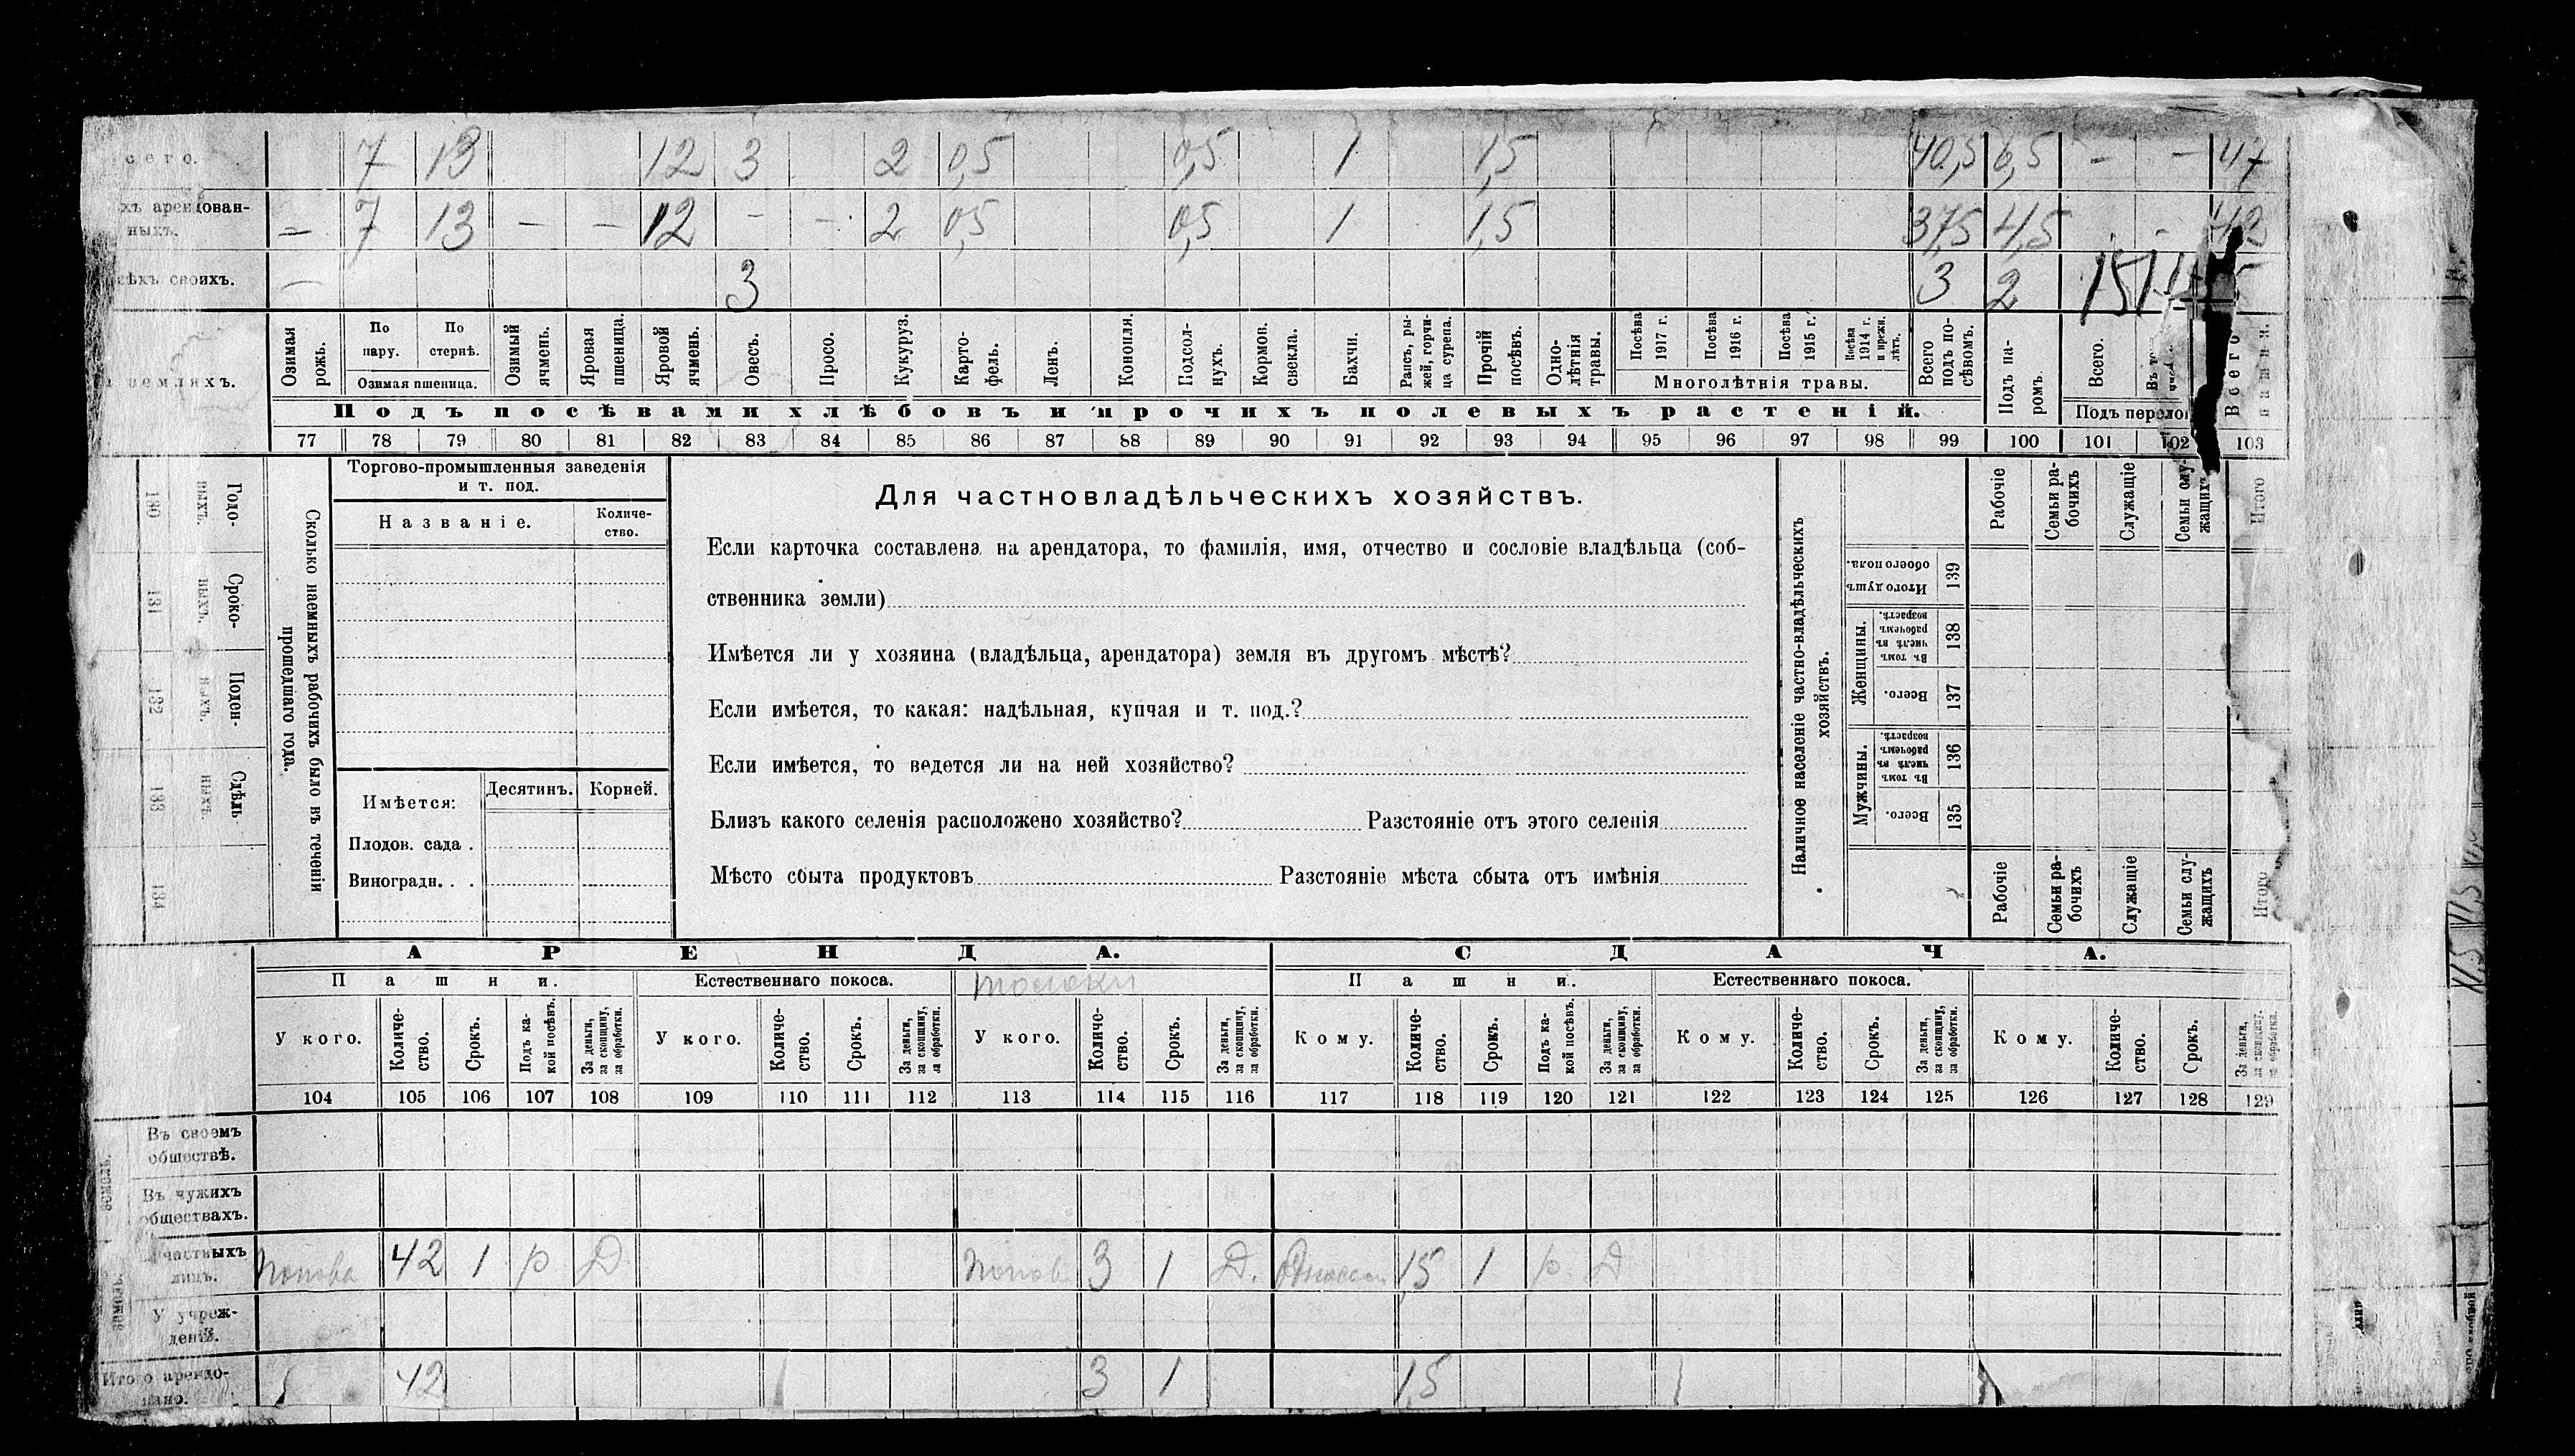 7 13 12 3 2 0,5 0,5 1 1,5 40,5 6,5 - - 47
арендован-
ныхъ. - 7 13 - - 12 - - 2 0,5 0,5 1 1,5 37,5 4,5 - -
своихъ. - 3 3 2
земляхъ.
Озимая рожь.
По пару.
По стернѣ.
Озимая пшеница.
Озимый ячмень.
Яровая пшеница.
Яровой ячмень.
Овесъ.
Просо.
Кукуруз.
Карто-
фель.
Ленъ.
Конопля.
Подсол-
нухъ.
Кормов.
свекла.
Бахчи.
Рапсъ, ры-
жей, горчи-
ца сурепа.
Прочій
посѣвъ.
Одно-
лѣтнія
травы.
Посѣва
1917 г.
Посѣва
1916 г.
Посѣва
1915 г.
Посѣва
1914 г.
и прежн.
лѣтъ.
Многолѣтнія травы.
Всего
подъ по-
сѣвомъ.
Подъ па-
ромъ.
Всего.
Въ
Подъ
Всего
пашни.
Подъ посѣвами хлѣбовъ и прочихъ полевыхъ растеній.
77 78 79 80 81 82 83 84 85 86 87 88 89 90 91 92 93 94 95 96 97 98 99 100 101 102 103
Годо-
выхъ.
130
Сроко-
выхъ.
131
Поден-
ныхъ.
132
Сдѣль-
ныхъ.
133
134
Сколько наемныхъ рабочихъ было въ теченіи
прошедшаго года.
Торгово-промышленныя заведенія
и т. под.
Названіе.
Количе-
ство.
Имѣется:
Десятинъ.
Корней.
Плодов. сада .
Виноградн. . .
Для частновладѣльческихъ хозяйствъ.
Если карточка составлена на арендатора, то фамилія, имя, отчество и сословіе владѣльца (соб-
ственника земли)
Имѣется ли у хозяина (владѣльца, арендатора) земля въ другомъ мѣстѣ?
Если имѣется, то какая: надѣльная, купчая и т. под.?
Если имѣется, то ведется ли на ней хозяйство?
Близъ какого селенія расположено хозяйство? Разстояніе отъ этого селенія
Мѣсто сбыта продуктовъ Разстояніе мѣста сбыта отъ имѣнія
Наличное населеніе частно-владѣльческихъ
хозяйствъ.
Рабочіе
Семьи ра-
бочихъ
Служащіе
Семьи слу-
жащихъ
Итого
Итого душъ
обоего пола.
139
Женщины.
Въ томъ
числѣ въ
рабочемъ
возрастѣ.
138
Всего.
137
Мужчины.
Въ томъ
числѣ въ
рабочемъ
возрастѣ.
136
Всего.
135
Рабочіе
Семьи ра-
бочихъ
Служащіе
Семьи слу-
жащихъ
Итого
АРЕНДА. СДАЧА.
Пашни. Естественнаго покоса. толоки Пашни. Естественнаго покоса.
У кого.
Количе-
ство.
Срокъ.
Подъ ка-
кой посѣвъ.
За деньги,
за скопщину,
за обработки.
У кого.
Количе-
ство.
Срокъ.
За деньги,
за скопщину,
за обработки.
У кого.
Количе-
ство.
Срокъ.
За деньги,
за скопщину,
за обработки.
Кому.
Количе-
ство.
Срокъ.
Подъ ка-
кой посѣвъ.
За деньги,
за скопщину,
за обработки.
Кому.
Количе-
ство.
Срокъ.
За деньги,
за скопщину,
за обработки.
Кому.
Количе-
ство.
Срокъ.
За деньги,
за скопщину,
за обработки.
104 105 106 107 108 109 110 111 112 113 114 115 116 117 118 119 120 121 122 123 124 125 126 127 128 129
земель.
Въ своемъ
обществѣ.
Въ чужихъ
обществахъ.
частныхъ
лицъ. Попова 42 1 р Д Попов 3 1 Д. 15 1 р. Д
У учреж-
деній.
Итого арендо-
вано. 42 3 1 15